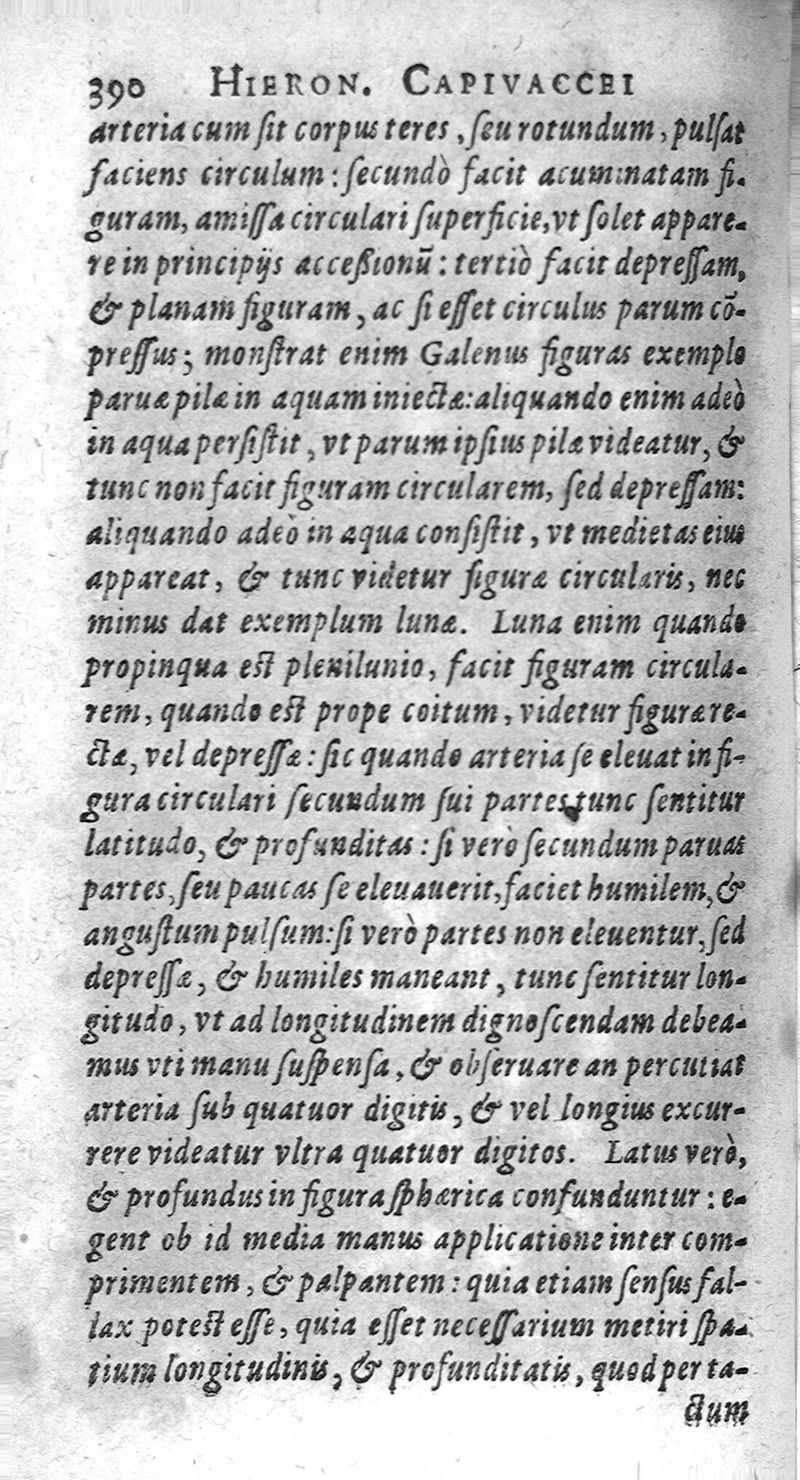 390 HIERON. CAPIVACCEI
arteria cum ſit corpus teres, ſeu rotundum, pulſat
faciens circulum: ſecundò facit acuminatam fi-
guram, amiſſa circulari ſuperficie, vt ſolet appare-
re in principijs acceßionū: tertiò facit depreſſam,
& planam figuram, ac ſi eſſet circulus parum cō-
preſſus; monſtrat enim Galenus figuras exemplo
paruæ pilæ in aquam iniectæ: aliquando enim adeò
in aqua perſiſtit, vt parum ipſius pilæ videatur, &
tunc non facit figuram circularem, ſed depreſſam:
aliquando adeò in aqua conſiſtit, vt medietas eius
appareat, & tunc videtur figuræ circularis, nec
minus dat exemplum lunæ. Luna enim quando
propinqua eſt plenilunio, facit figuram circula-
rem, quando eſt prope coitum, videtur figuræ re-
ctæ, vel depreſſæ: ſic quando arteria ſe eleuat in fi-
gura circulari ſecundum ſui partes, tunc ſentitur
latitudo, & profunditas: ſi verò ſecundum paruas
partes, ſeu paucas ſe eleuauerit, faciet humilem, &
anguſtum pulſum: ſi verò partes non eleuentur, ſed
depreſſæ, & humiles maneant, tunc ſentitur lon-
gitudo, vt ad longitudinem dignoſcendam debea-
mus vti manu ſuſpenſa, & obſeruare an percutiat
arteria ſub quatuor digitis, & vel longius excur-
rere videatur vltra quatuor digitos. Latus verò,
& profundus in figura ſphærica confunduntur: e-
gent ob id media manus applicatione inter com-
primentem, & palpantem: quia etiam ſenſus fal-
lax poteſt eſſe, quia eſſet neceſſarium metiri ſpa-
tium longitudinis, & profunditatis, quod per ta-
ctum